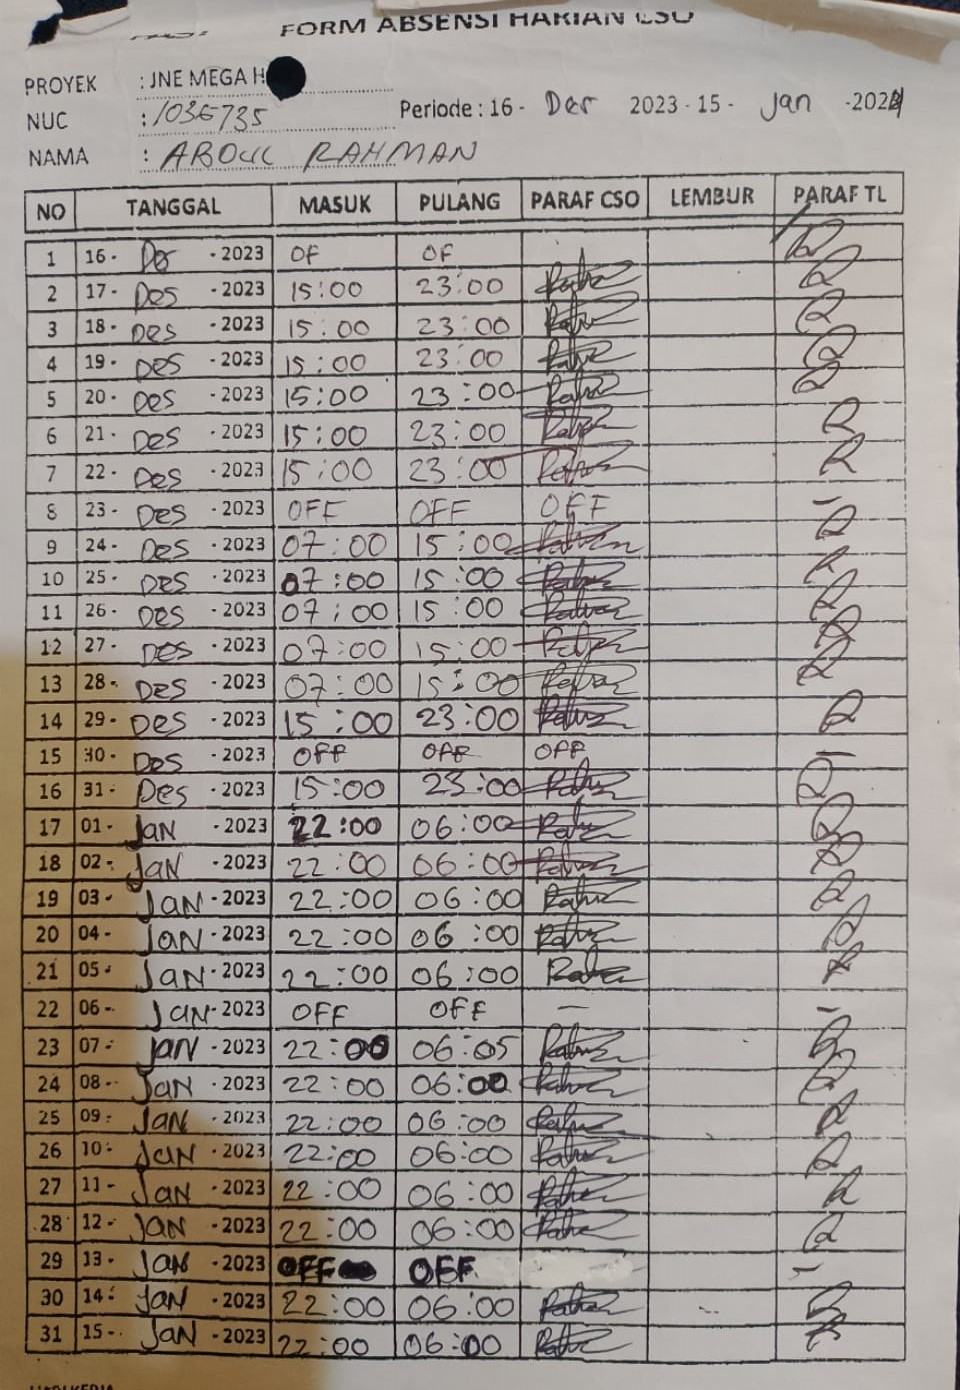 FORM ABSENSI HARIAN CSO
PROYEK : JNE MEGA H
NUC : 1036735 Periode : 16 - Des 2023 - 15 - Jan - 2024
NAMA : ABDUL RAHMAN
NO TANGGAL MASUK PULANG PARAF CSO LEMBUR PARAF TL
1 16 - Des - 2023 OF OF
2 17 - Des - 2023 15:00 23:00
3 18 - Des - 2023 15:00 23:00
4 19 - Des - 2023 15:00 23:00
5 20 - Des - 2023 15:00 23:00
6 21 - Des - 2023 15:00 23:00
7 22 - Des - 2023 15:00 23:00
8 23 - Des - 2023 OFF OFF OFF -
9 24 - Des - 2023 07:00 15:00
10 25 - Des - 2023 07:00 15:00
11 26 - Des - 2023 07:00 15:00
12 27 - Des - 2023 07:00 15:00
13 28 - Des - 2023 07:00 15:00
14 29 - Des - 2023 15:00 23:00
15 30 - Des - 2023 OFF OFF OFF
16 31 - Des - 2023 15:00 23:00
17 01 - Jan - 2023 22:00 06:00
18 02 - Jan - 2023 22:00 06:00
19 03 - Jan - 2023 22:00 06:00
20 04 - Jan - 2023 22:00 06:00
21 05 - Jan - 2023 22:00 06:00
22 06 - Jan - 2023 OFF OFF - -
23 07 - Jan - 2023 22:00 06:05
24 08 - Jan - 2023 22:00 06:00
25 09 - Jan - 2023 22:00 06:00
26 10 - Jan - 2023 22:00 06:00
27 11 - Jan - 2023 22:00 06:00
28 12 - Jan - 2023 22:00 06:00
29 13 - Jan - 2023 OFF OFF -
30 14 - Jan - 2023 22:00 06:00
31 15 - Jan - 2023 22:00 06:00